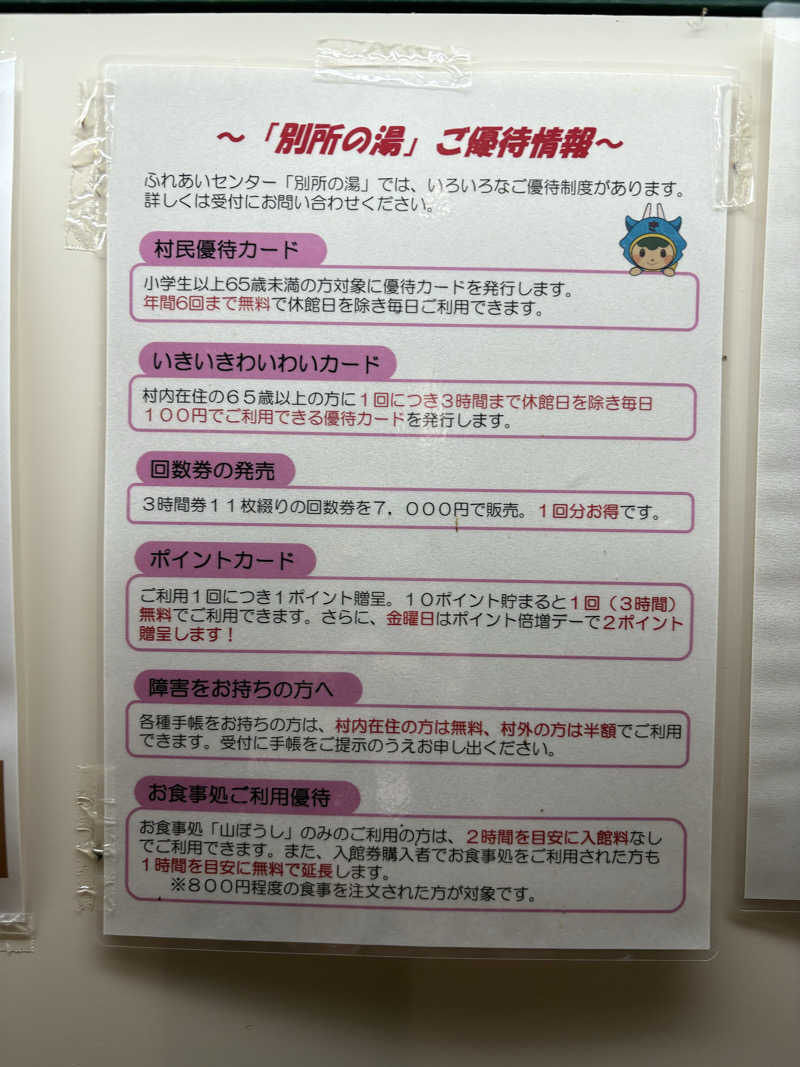 ～「別所の湯」ご優待情報～
ふれあいセンター「別所の湯」では、いろいろなご優待制度があります。
詳しくは受付にお問い合わせください。
き
村民優待カード
小学生以上65歳未満の方対象に優待カードを発行します。
年間6回まで無料で休館日を除き毎日ご利用できます。
いきいきわいわいカード
村内在住の６５歳以上の方に１回につき３時間まで休館日を除き毎日
１００円でご利用できる優待カードを発行します。
回数券の発売
３時間券１１枚綴りの回数券を７，０００円で販売。１回分お得です。
ポイントカード
ご利用１回につき１ポイント贈呈。１０ポイント貯まると１回（３時間）
無料でご利用できます。さらに、金曜日はポイント倍増デーで２ポイント
贈呈します！
障害をお持ちの方へ
各種手帳をお持ちの方は、村内在住の方は無料、村外の方は半額でご利用
できます。受付に手帳をご提示のうえお申し出ください。
お食事処ご利用優待
お食事処「山ぼうし」のみのご利用の方は、２時間を目安に入館料なし
でご利用できます。また、入館券購入者でお食事処をご利用された方も
１時間を目安に無料で延長します。
※８００円程度の食事を注文された方が対象です。